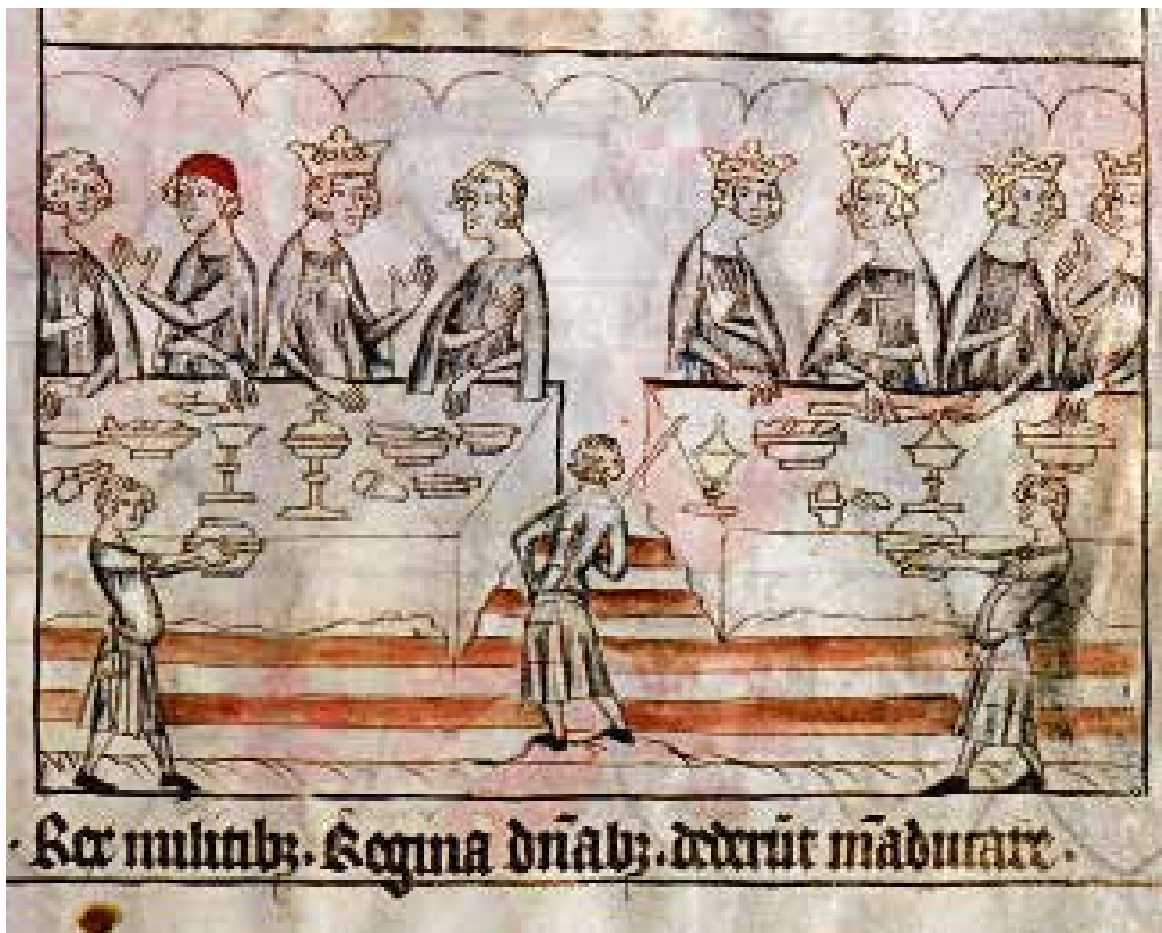 · Rex militibꝫ. Regina dn̄abꝫ. dederūt māducare.